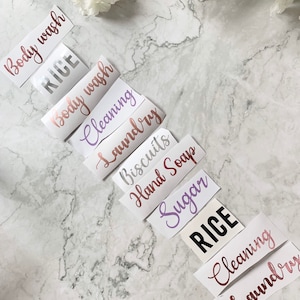 Body wash
RICE
Body wash
Cleaning
Laundry
Biscuits
Hand Soap
Sugar
RICE
Cleaning
Laundry